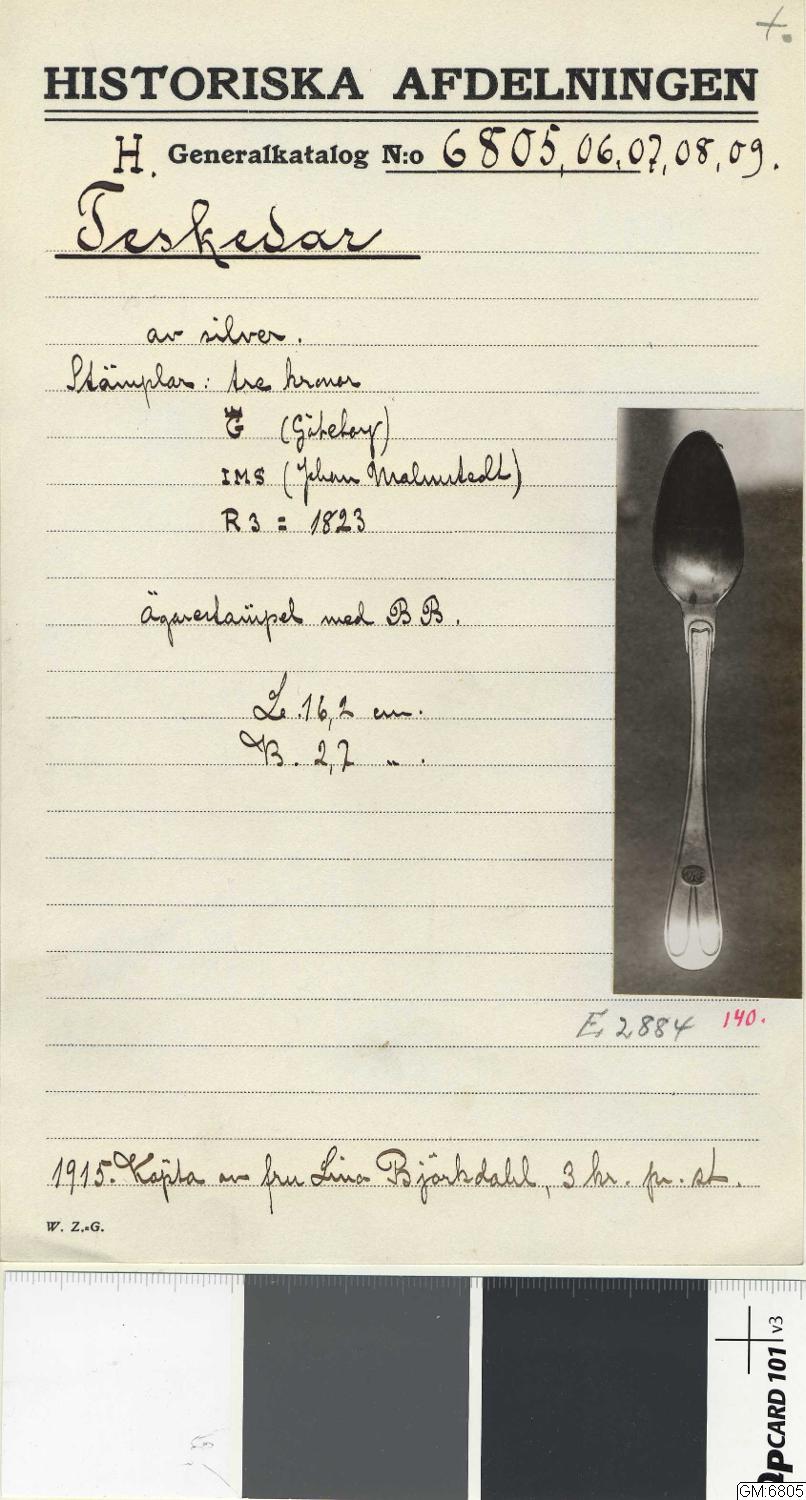 +.
HISTORISKA AFDELNINGEN
H. Generalkatalog N:o 6805, 06, 07, 08, 09.
Teskedar
av silver.
Stämplar: tre kronor
G (Göteborg)
IMS (Johan Malmstedt)
R3 = 1823
Ägarestämpel med B B.
L. 16,2 cm.
B. 2,7 " .
E, 2884 140.
1915. Köpta av fru Lina Björkdahl, 3 kr. pr. st.
W. Z.-G.
QPCARD 101 v3
GM:6805